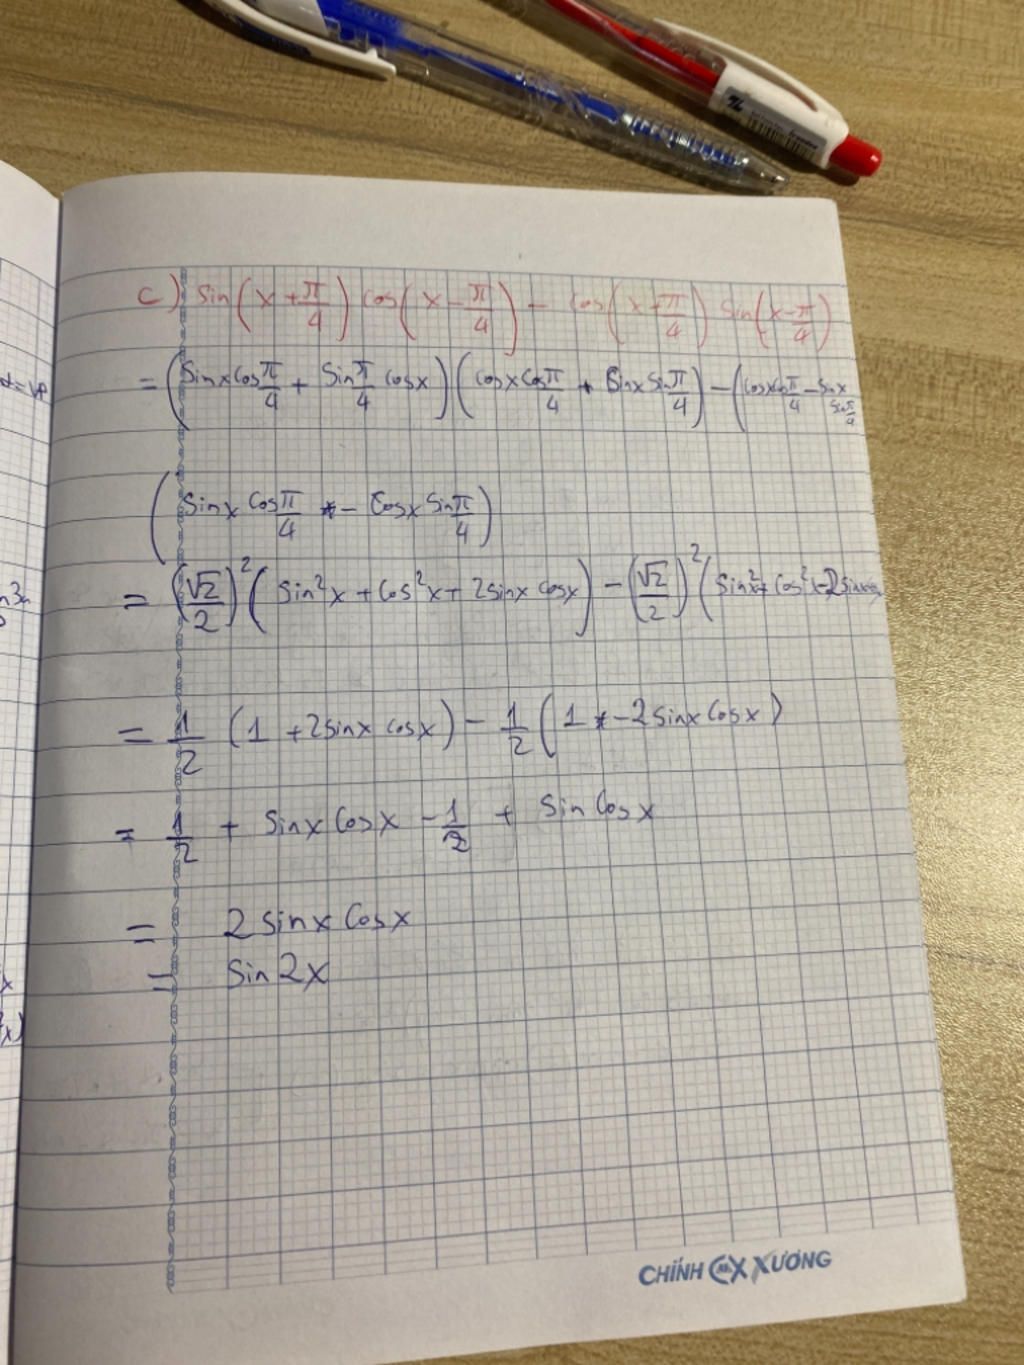 c) sin(x + π/4) cos(x - π/4) - cos(x + π/4) sin(x - π/4)
= (Sinx Cos π/4 + Sin π/4 cosx)(cosx Cos π/4 + Sinx Sin π/4) - (cosx Cos π/4 - Sinx Sin π/4
(Sinx Cos π/4 - Cosx Sin π/4)
= (√2/2)² (Sin²x + Cos²x + 2sinx cosx) - (√2/2)² (Sin²x + Cos²x - 2Sinx
= 1/2 (1 + 2sinx cosx) - 1/2 (1 - 2sinx Cosx)
= 1/2 + Sinx Cosx - 1/2 + Sin Cosx
= 2 Sinx Cosx
= Sin 2x
CHÍNH XƯƠNG